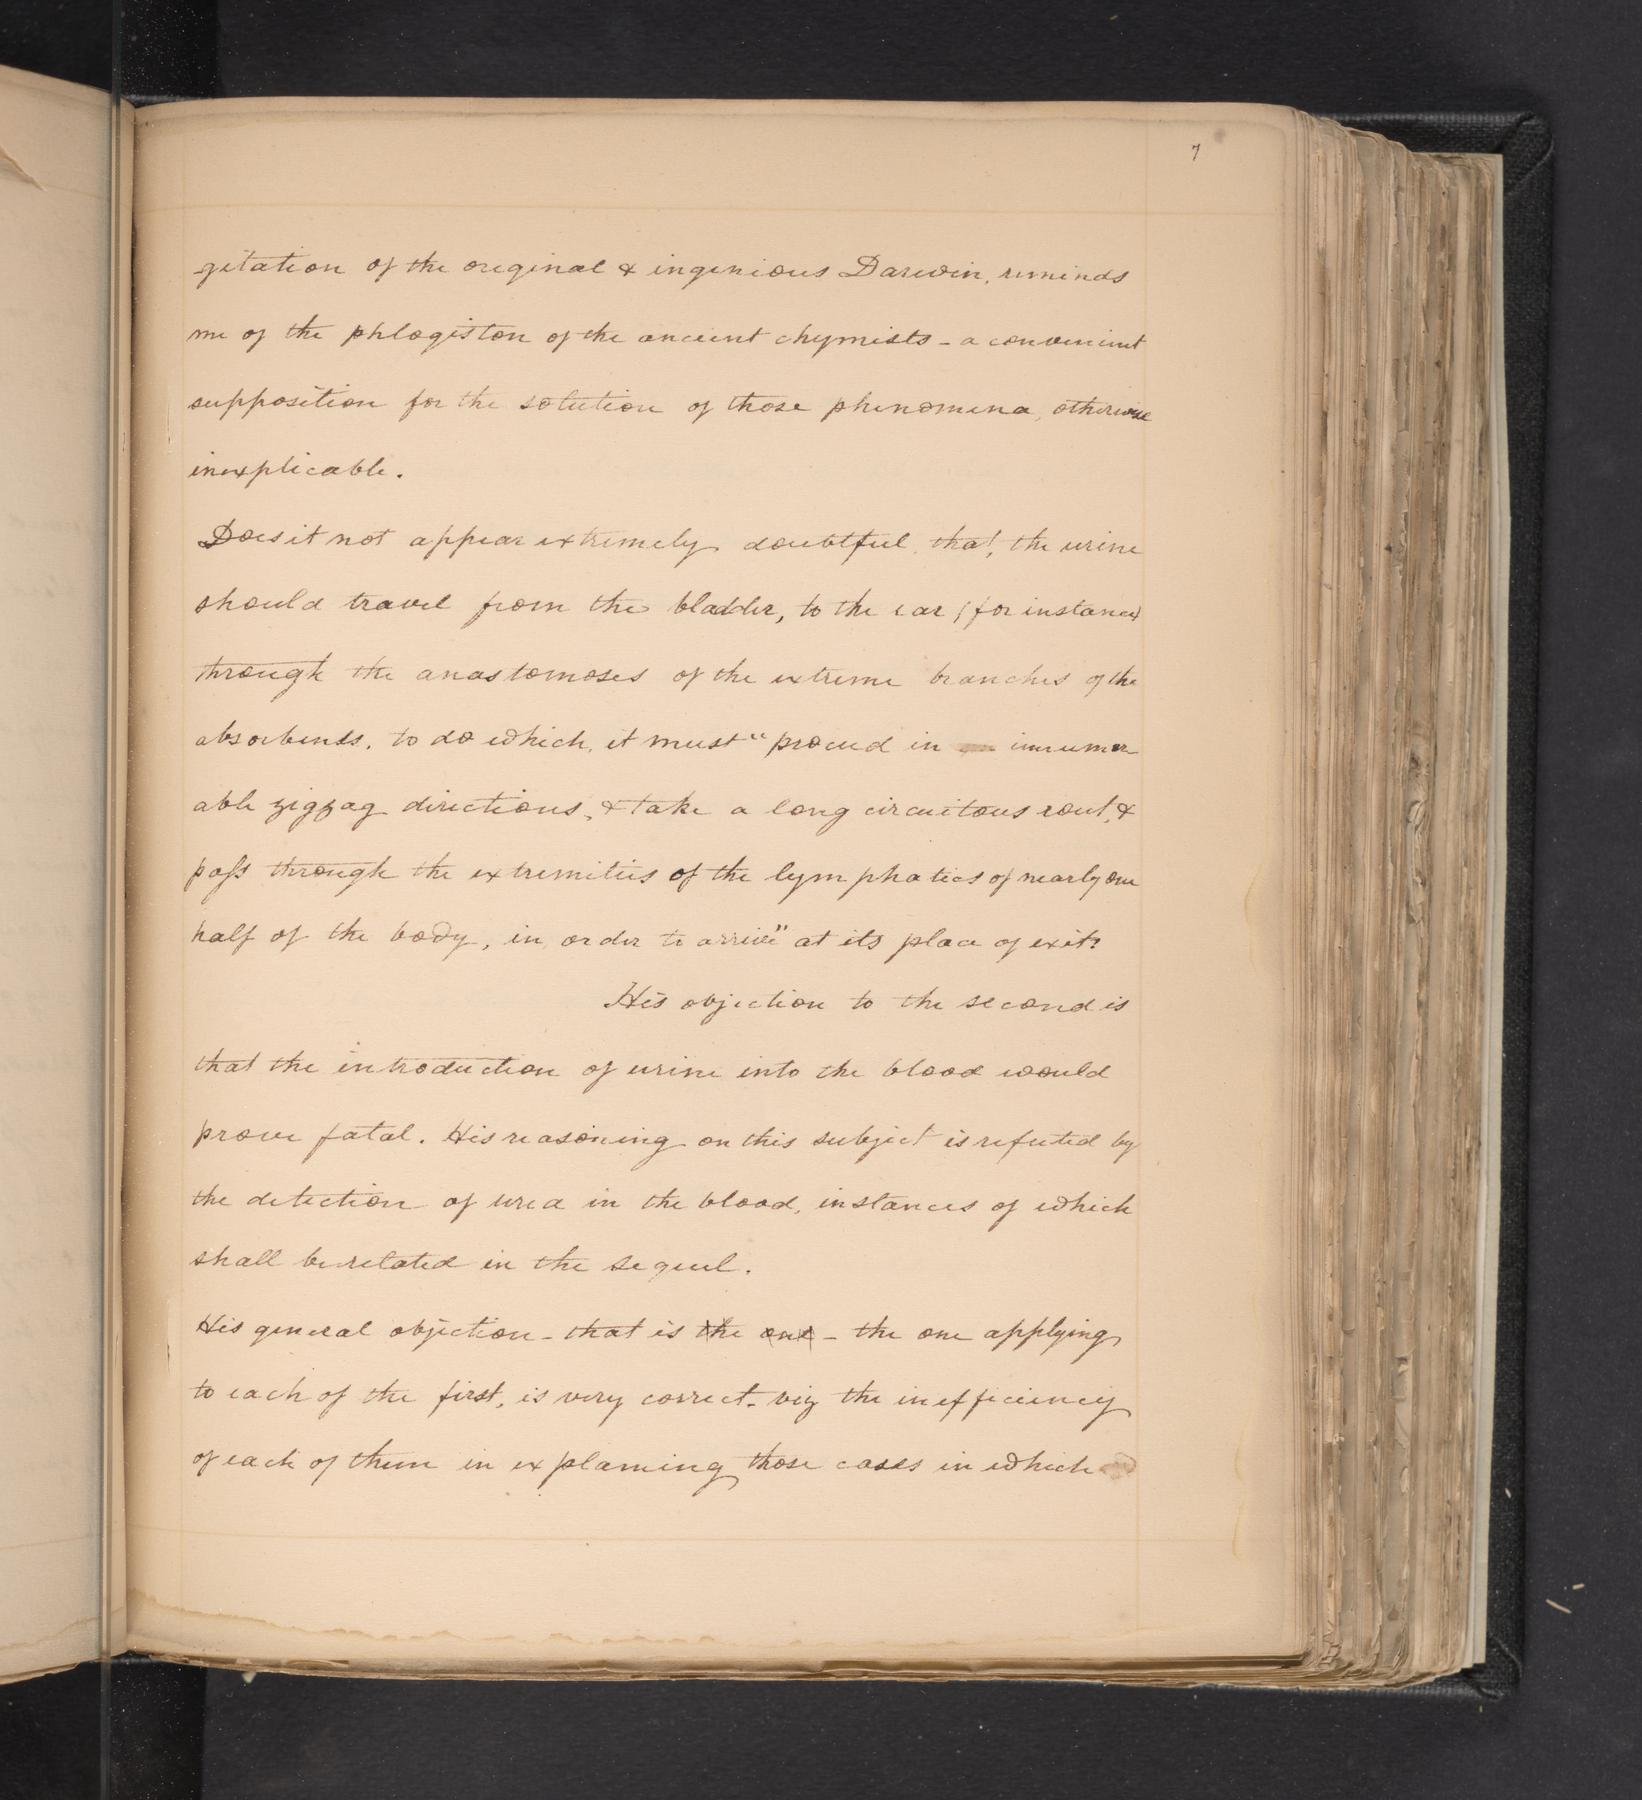 7
gitation of the original & ingenious Darwin, reminds
me of the phlogiston of the ancient chymists - a convenient
supposition for the solution of those phenomena, otherwise
inexplicable.
Does it not appear extremely doubtful, that, the urine
should travel from the bladder, to the ear (for instance)
through the anastomoses of the extreme branches of the
absorbents, to do which, it must "proceed in innumer
able zigzag directions, & take a long circuitous rout, &
pass through the extremities of the lymphatics of nearly one
half of the body, in order to arrive" at its place of exit?
His objection to the second is
that the introduction of urine into the blood would
prove fatal. His reasoning on this subject is refuted by
the detection of urea in the blood, instances of which
shall be related in the sequel.
His general objection - that is the one - the one applying
to each of the first, is very correct - viz the inefficiency
of each of them in explaming those cases in which